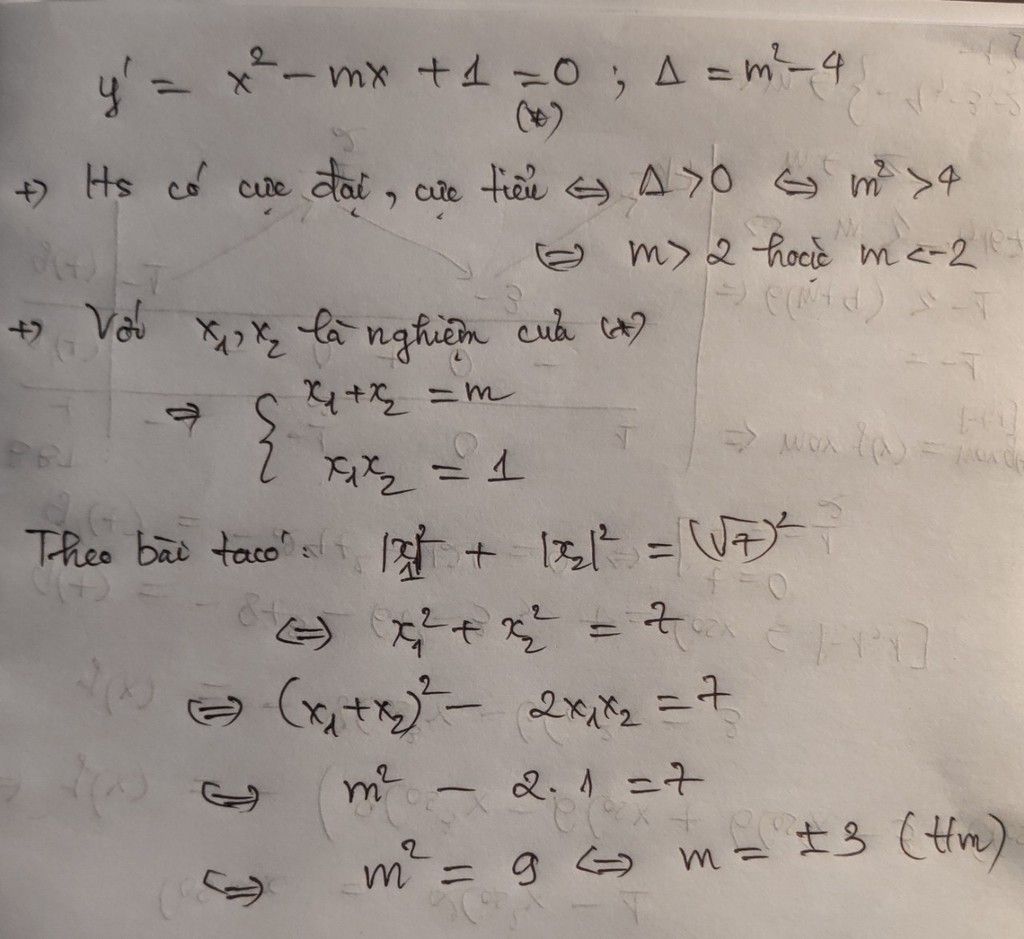 y' = x² - mx + 1 = 0 ; Δ = m² - 4
(*)
+> Hs có cực đại, cực tiểu ⇔ Δ > 0 ⇔ m² > 4
⇔ m > 2 hoặc m < -2
+> Với x₁, x₂ là nghiệm của (*)
⇒ { x₁ + x₂ = m
x₁x₂ = 1
Theo bài ta có: |x₁|² + |x₂|² = (√7)²
⇔ x₁² + x₂² = 7
⇔ (x₁ + x₂)² - 2x₁x₂ = 7
⇔ m² - 2.1 = 7
⇔ m² = 9 ⇔ m = ±3 (ttm)